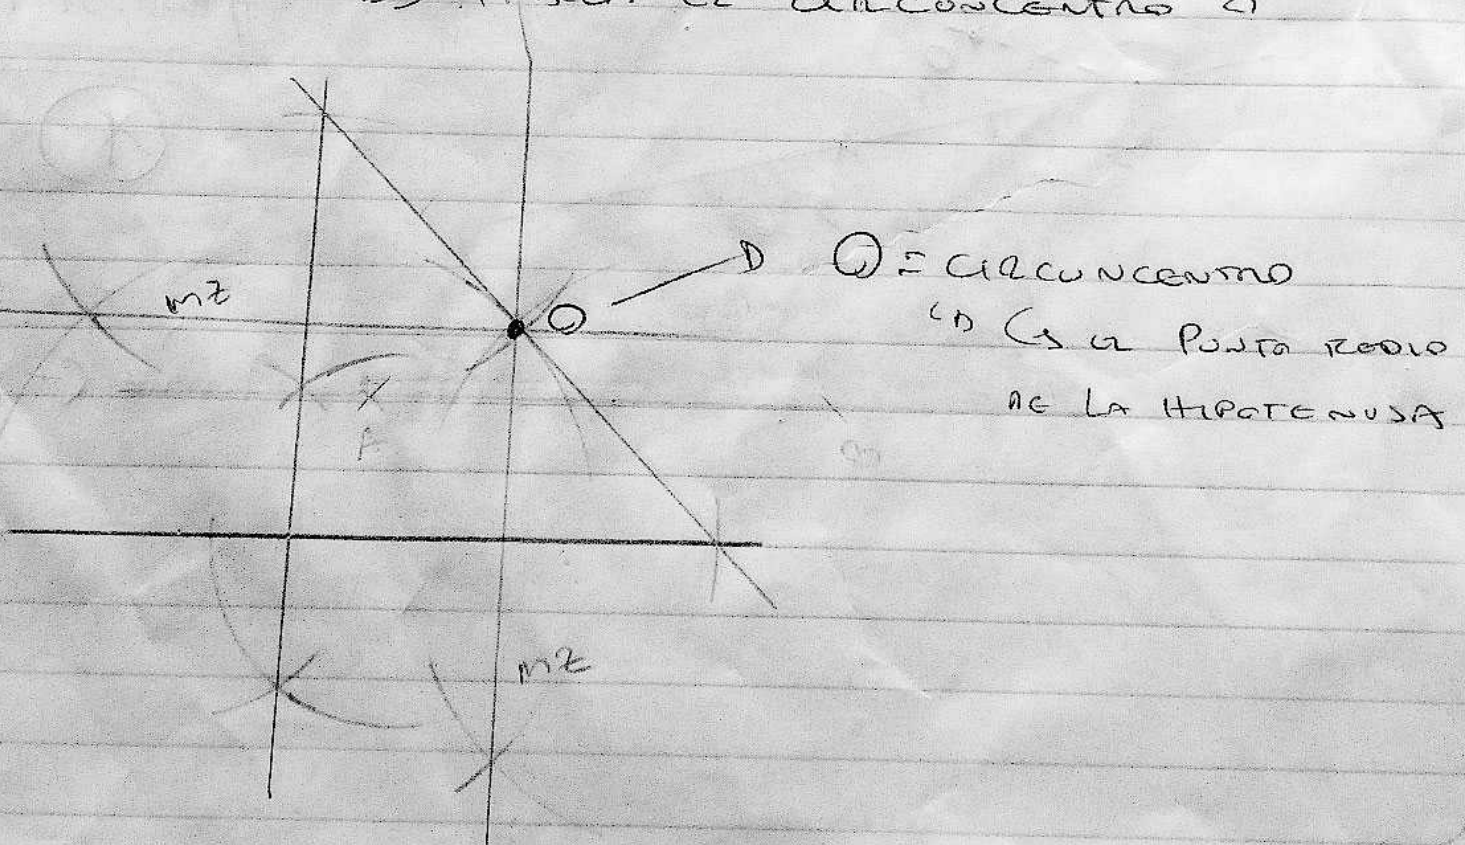 EL CIRCONCENTRO
mz
O
O = CIRCUNCENTRO
ES EL PUNTO MEDIO
DE LA HIPOTENUSA
mz